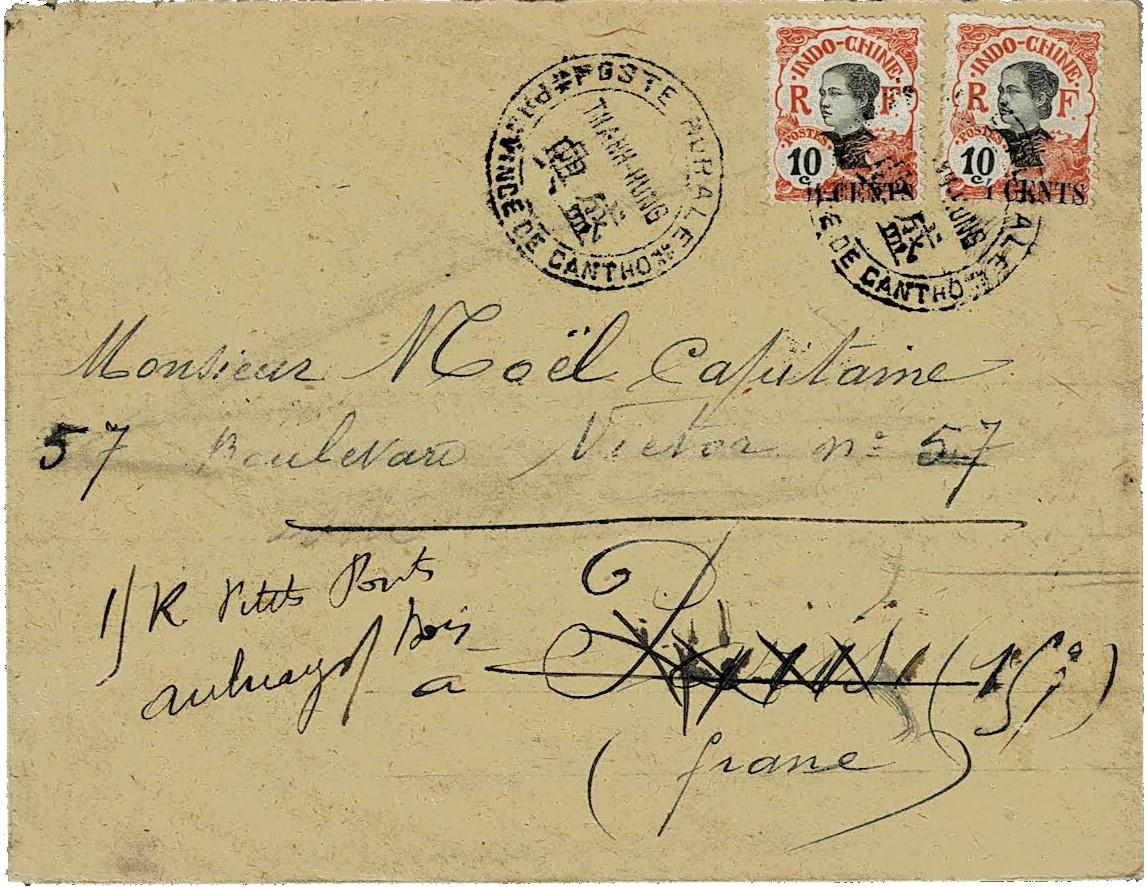 POSTE RURALE
PROVINCE DE CANTHO
THANH-HUNG
盛
INDO-CHINE
R F
POSTES
10 c.
4 CENTS
INDO-CHINE
R F
POSTES
10 c.
4 CENTS
DE CANTHO
盛
Monsieur Noël Capitaine
57 Boulevard Victor n° 57
1/ R Petits Ponts
aulnay s/ Bois
a Paris (15
(france)